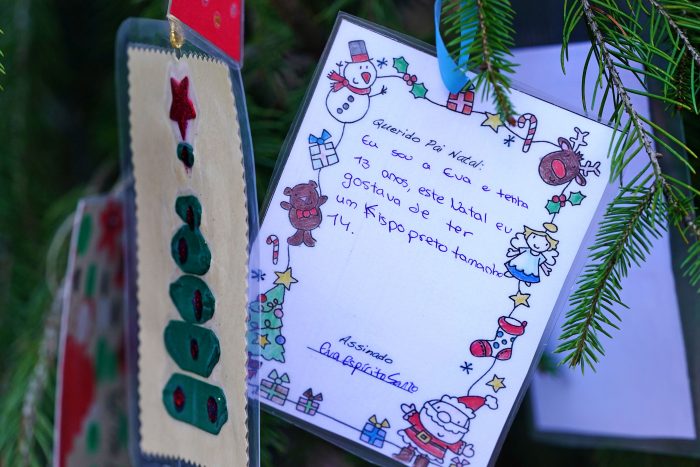 Querido Pai Natal:
Eu sou a Eva e tenha
13 anos, este Natal eu
gostava de ter
um Kispo preto tamanho
14.
Assinado
Eva Espírito Santo